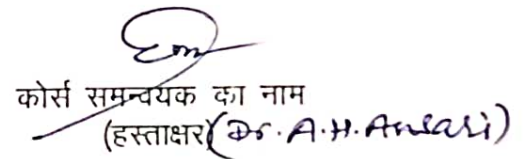 कोर्स समन्वयक का नाम
(हस्ताक्षर) (Dr. A.H. Ansari)